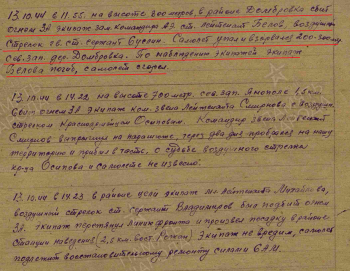 13.10.44 в 11.55. на высоте 800 метров, в районе Домбровка сбит
огнем ЗА экипаж зам. командира АЭ ст. лейтенант Белов, воздушный
стрелок ст. сержант Самолет упал и взорвался 200-300 м.
сев. зап. дер. Домбровка. По наблюдению экипажей экипаж
Белова погиб, самолет сгорел.
13.10.44 в 14.22, на высоте 700 метр. сев. зап. 1,5 км
был сбит огнем ЗА экипаж ком. звена лейтенанта Смирнова с воздушн.
стрелком Красноармейцем Осиповым. Командир звена лейтенант
Смирнов выпрыгнул на парашюте, через два дня пробрался на нашу
территорию и прибыл в часть, о судьбе воздушного стрелка
кр-ца Осипова и самолете не известно.
13.10.44 в 14.23 в районе цели экипаж мл. лейтенанта Михайлова,
воздушный стрелок ст. сержант Владимиров был подбит огнем
ЗА. экипаж перетянул линию фронта и произвел посадку в районе
станции наведения (2,0 км. вост. Рожан) Экипаж не вредим, самолет
подлежит восстановительному ремонту силами